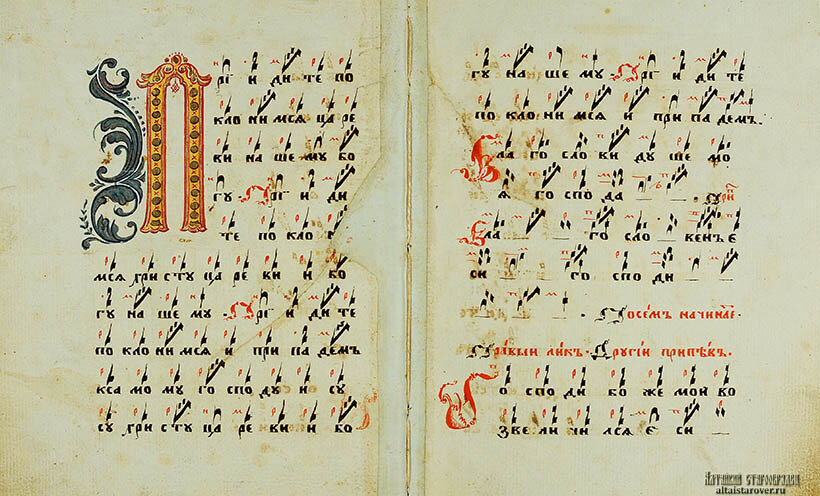 Прїидите по
клонимся царе
ви нашему бо
гу · Прїиди
те поклони
мся христу цареви и бо
гу нашему · Прїидите
поклонимся и припадемъ
ксамому господу и су
су христу цареви и бо
гу нашему · Прїидите
поклонимся и припадемъ.
Благослови душе мо
я господа ·
Благословенъ є
си господи
· Посемъ
Правыи ликъ · Другїи припѣвъ ·
Господи боже мои во
звеличился єси
Алтайский старообрядец
altaistarover.ru